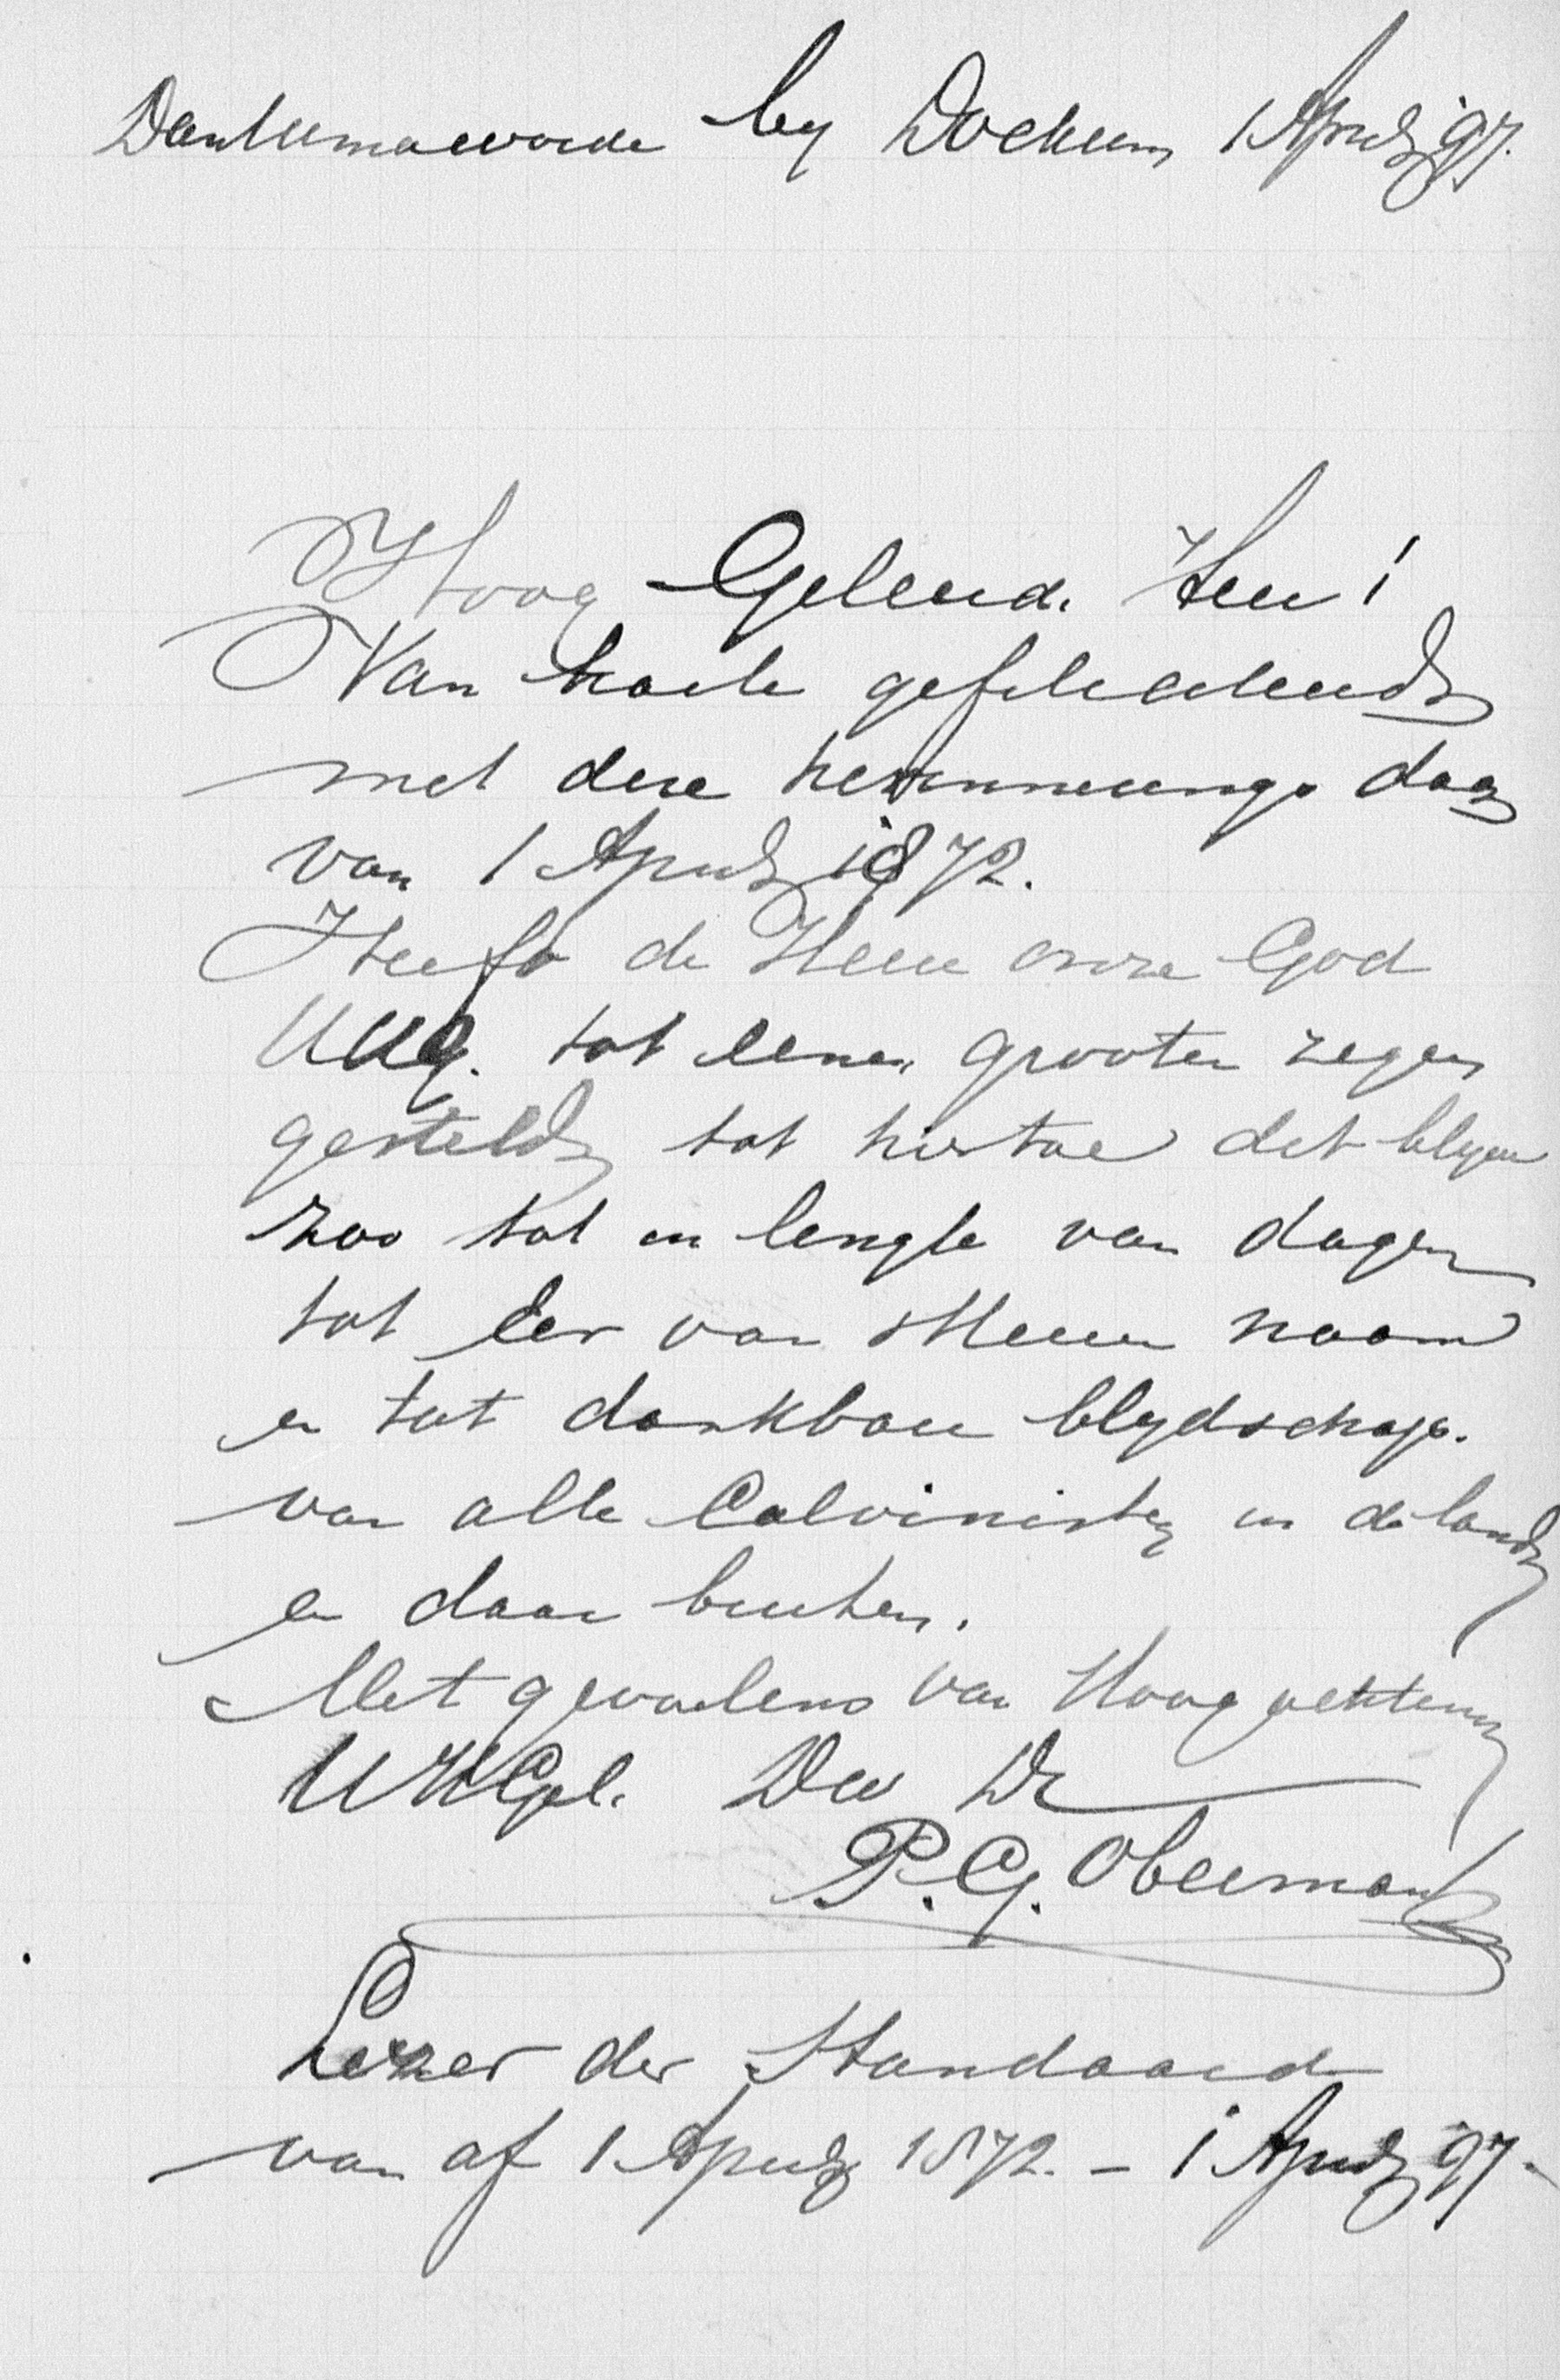 Dantumawoude by Dockum 1 April 97.
Hoog Geleerde Heer!
Van harte gefeliciteerd
met deze herinnerings dag
van 1 April 1872.
Heeft de Heere onze God
tot eenen grooten zegen
gesteld tot hiertoe dit blyve
zoo tot in lengte van dagen
tot eer van Zynen naam
en tot dankbare blydschap.
van alle Calvinisten in de lande
en daar buiten.
Met gevoelens van Hoogachting
UHGel. Dw Dr
P. G. Obermans
Lezer der Standaard
van af 1 April 1872. – 1 April 97.